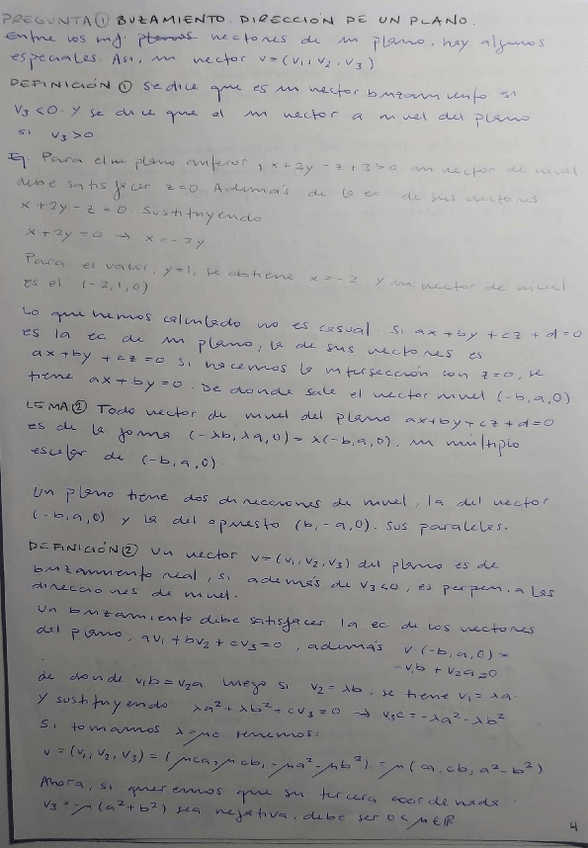 PREGUNTA ① BUZAMIENTO. DIRECCIÓN DE UN PLANO.
Entre los inf. vectores de un plano, hay algunos
especiales. Así, un vector v=(v₁, v₂, v₃)
DEFINICIÓN ① se dice que es un vector buzamiento si
v₃<0. Y se dice que el un vector a nivel del plano
si v₃>0.
Ej. Para el plano anterior, x+2y-z+3=0, un vector de nivel
debe satisfacer z=0. Además de la ec de sus vectores
x+2y-z=0. Sustituyendo
x+2y=0 → x=-2y
Para el valor, y=1, se obtiene x=-2 y un vector de nivel
es el (-2,1,0)
Lo que hemos calculado no es casual. Si ax+by+cz+d=0
es la ec de un plano, la de sus vectores es
ax+by+cz=0. Si hacemos la intersección con z=0, se
tiene ax+by=0. De donde sale el vector nivel (-b,a,0)
LEMA ② Todo vector de nivel del plano ax+by+cz+d=0
es de la forma (-λb, λa, 0) = λ(-b,a,0). un múltiplo
escalar de (-b,a,0).
Un plano tiene dos direcciones de nivel, la del vector
(-b,a,0) y la del opuesto (b,-a,0). Sus paralelas.
DEFINICIÓN ② Un vector v=(v₁, v₂, v₃) del plano es de
buzamiento real, si además de v₃<0, es perpen. a las
direcciones de nivel.
Un buzamiento debe satisfacer la ec de los vectores
del plano, av₁+bv₂+cv₃=0, además v·(-b,a,0)=
-v₁b+v₂a=0
de donde v₁b=v₂a luego si v₂=λb, se tiene v₁=λa.
Y sustituyendo λa²+λb²+cv₃=0 → v₃c=-λa²-λb²
Si tomamos λ=μc tenemos:
v=(v₁, v₂, v₃)=(μca, μcb, -μa²-μb²)=μ(ca, cb, a²-b²)
Ahora, si queremos que su tercera coordenada
v₃=-μ(a²+b²) sea negativa, debe ser 0≤μ∈ℝ
4